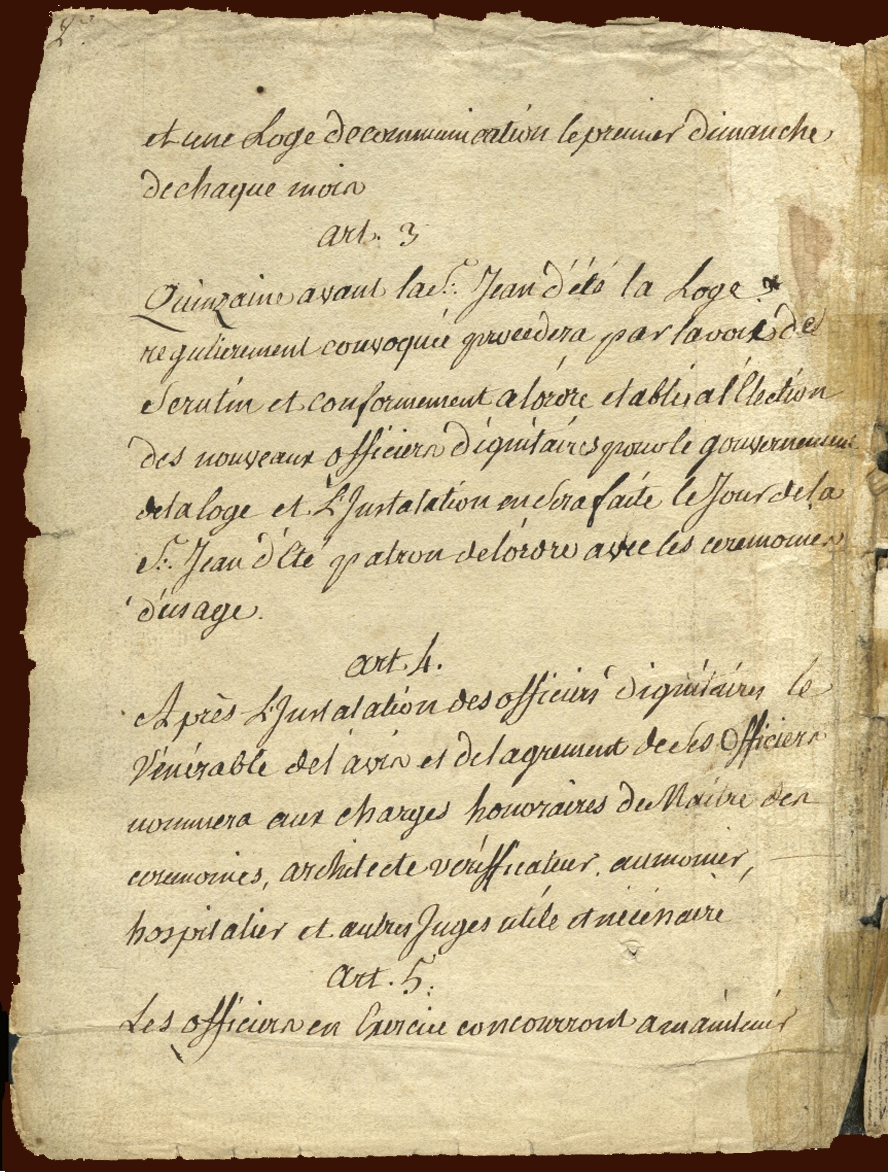 2.
et une Loge de communication le premier dimanche
de chaque mois
art. 3
Quinzaine avant la St. Jean d'été la Loge
regulierement convoquée procedera par la voie de
Scrutin et conformement a l'ordre etablis a l'Election
des nouveaux officiers dignitaires pour le gouvernement
de la loge et L'Instalation en Sera faite le Jour de la
St. Jean d'Eté patron de l'ordre avec les ceremonies
d'usage.
art. 4.
Après L'Instalation des officiers dignitaires le
Vénérable de l'avis et de l'agrement de Ses Officiers
nommera aux charges honoraires de Maitre des
ceremonies, architecte vérifficateur, aumonier,
hospitalier et autres Juges utile et nécéssaire
art. 5.
Les officiers en Exercice concourront a maintenir